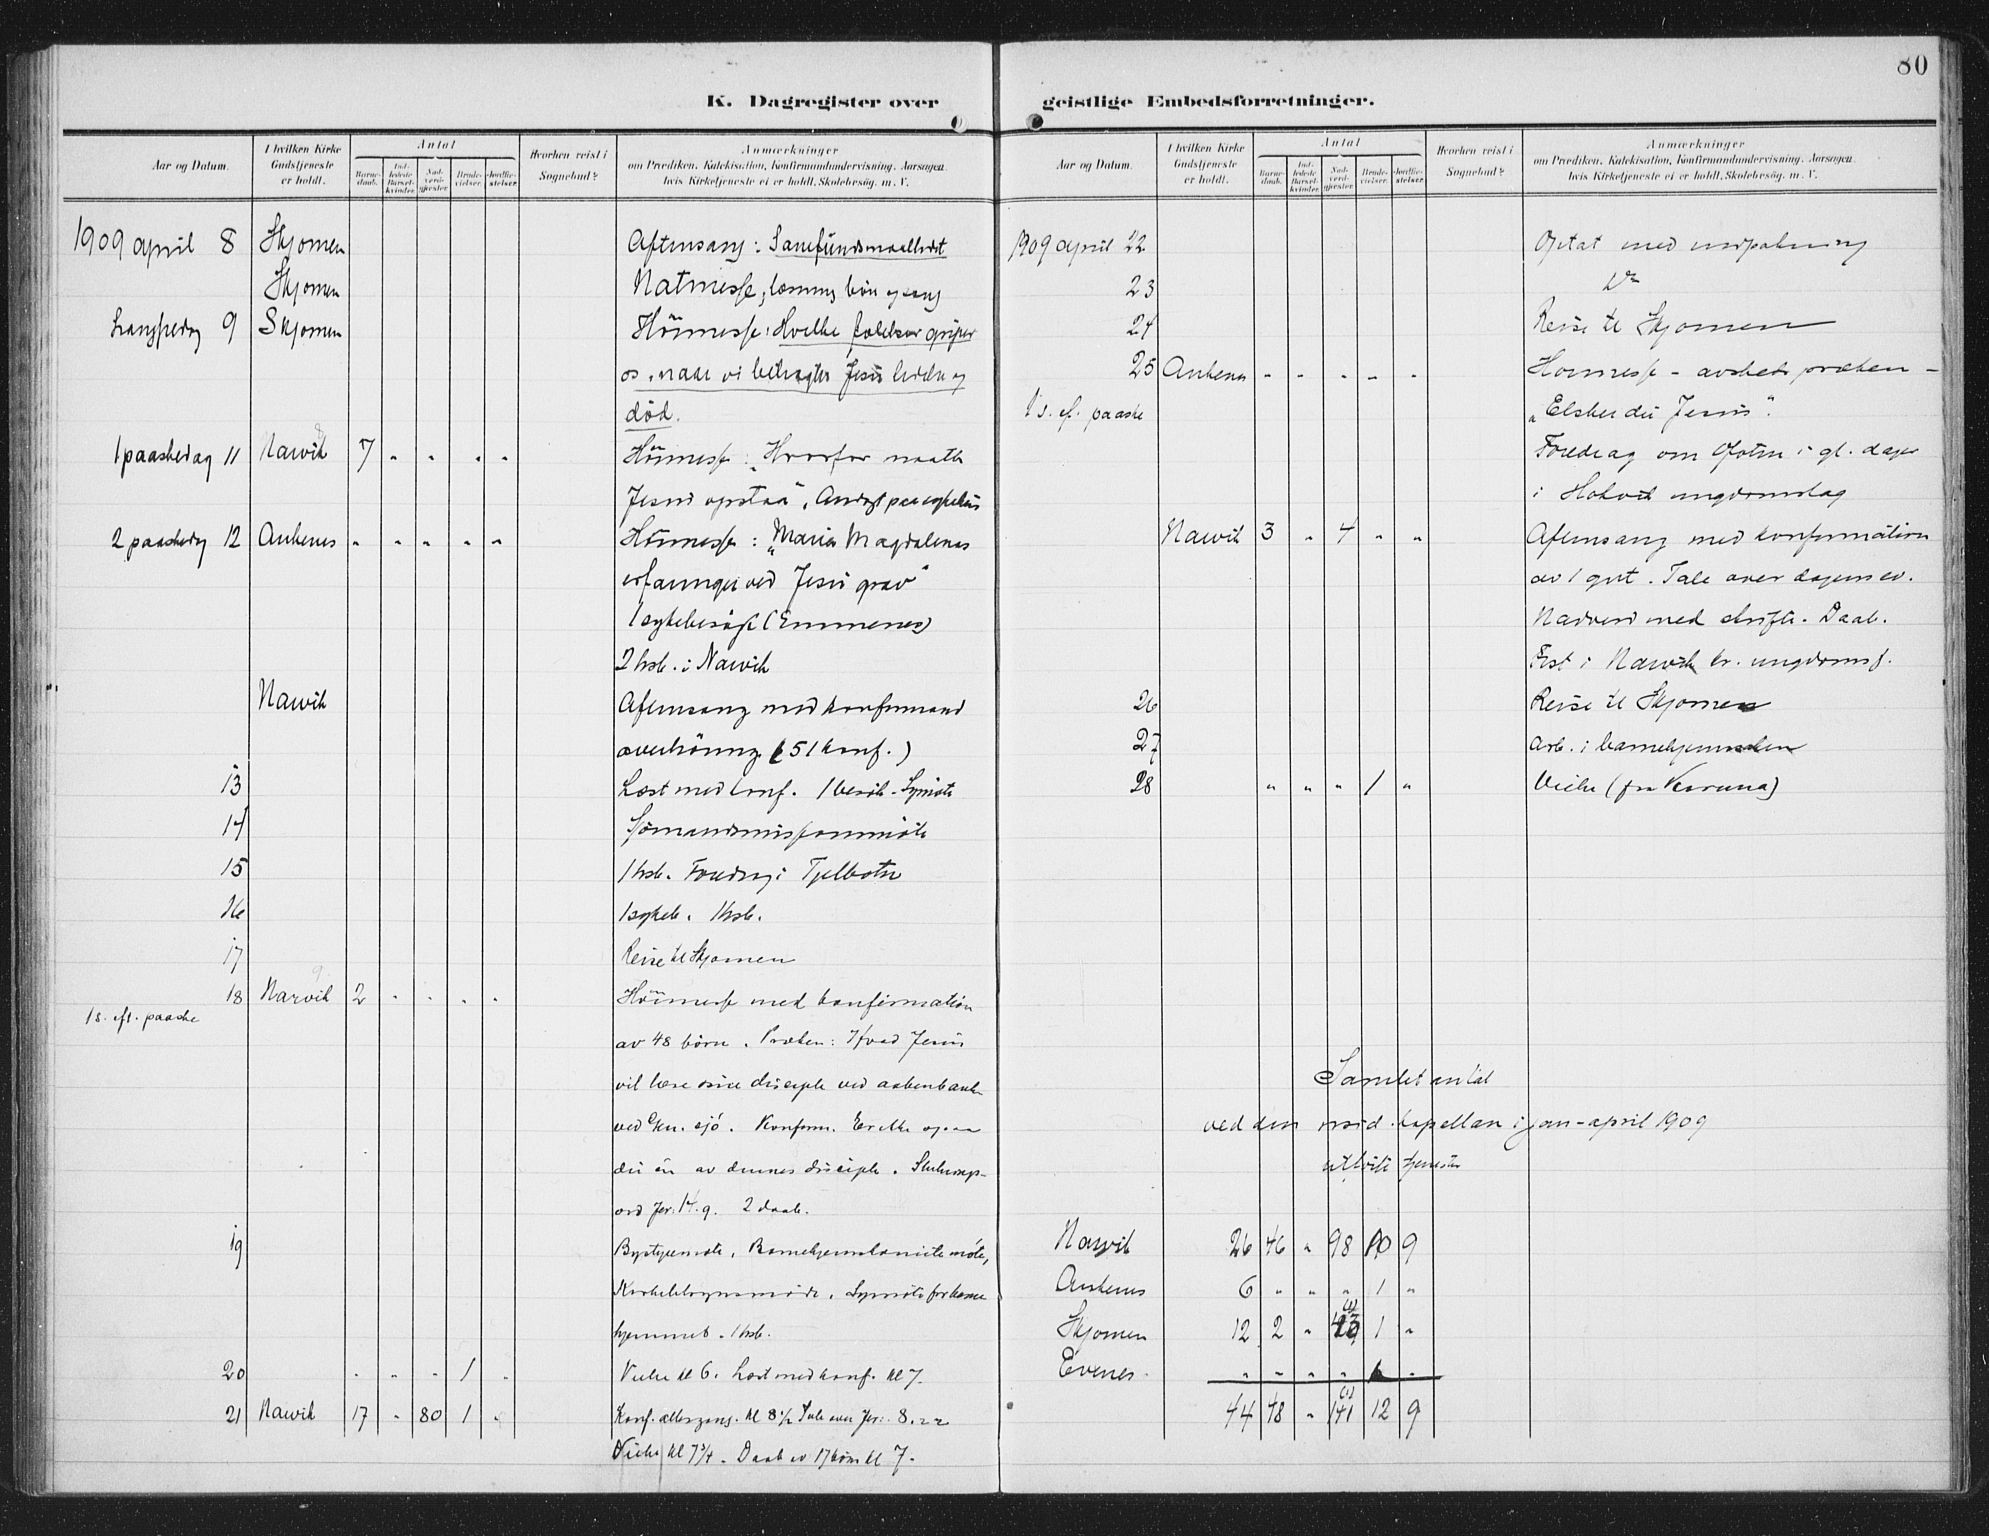 80
K. Dagregister over geistlige Embedsforretninger.
Aar og Datum.
I hvilken Kirke Gudstjeneste er holdt.
Antal
Barnedaab.
Indledede Barselkvinder.
Nadverdgjester.
Brudevielser.
Jordfæstelser.
Hvorhen reist i Sognebud?
Anmerkninger
om Prædiken, Katekisation, Konfirmandundervisning, Aarsagen hvis Kirketjeneste ei er holdt, Skolebesøg. m. V.
1909 april 8 Skjomen Aftensang: Samfundsmaaltidet
Skjomen Natmesse, læsning bön og sang
Langfredag 9 Skjomen Höimesse: Hvilke følelser griper
os, naar vi betragter Jesu lidelse og
död.
1 paaskedag 11 Narvik 7 " " " " Höimesse: "Hvorfor maatte
Jesus opstaa".
2 paaskedag 12 Ankenes " " " " " Höimesse: "Maria Magdalenas
erfaringer ved Jesu grav"
1 sykebesök (Emmenes)
2 hsb. i Narvik
Narvik Aftensang med konfirmand
overhöring (51 konf.)
13 Læst med konf. 1 besök. Symöte
14 Sjömandsmissionsmöte
15 1 hsb. Foredrag i
16 1 sykeb. 1 hsb.
17 Reise til Skjomen
18 Narvik 2 " " " " Höimesse med konfirmation
1 s. eft. paaske
av 48 börn. Præken: Hvad Jesus
vil lære sine disciple ved aabenbarelsen
ved Gen. sjö. Konfirm. Er ikke ogsaa
du en av dennes disciple.
ord Jer. 14.9. 2 daab.
19 Bystyremöte, Barnehjemskomitemöte,
Symöte for barne
hjemmet. 1 hsb.
20 " " " 1 " Vielse kl 6. Læst med konf. kl 7.
21 Narvik 17 " 80 1 " Konf. altergang. kl 8½ Tale over Jer. 8.22
Vielse kl 7¾. Daab av 17 börn kl 7.
Aar og Datum.
I hvilken Kirke Gudstjeneste er holdt.
Antal
Barnedaab.
Indledede Barselkvinder.
Nadverdgjester.
Brudevielser.
Jordfæstelser.
Hvorhen reist i Sognebud?
Anmærkninger
om Prædiken, Katekisation, Konfirmandundervisning, Aarsagen hvis Kirketjeneste ei er holdt, Skolebesøg. m. V.
1909 april 22 Optat med indpakning
23 Do
24 Reise til Skjomen
25 Ankenes " " " " " Höimesse - avskedspræken -
1 s. ef. paaske "Elsker du Jesus".
Foredrag om Ofoten i gl. dager
i Hakvik ungdomslag
Narvik 3 " 4 " " Aftensang med konfirmation
av 1 gut. Tale over dagens ev.
Nadverd med skrifte. Daab.
Fest i Narvik kr. ungdomsf.
26 Reise til Skjomen
27 Arb. i barnehjemssaken
28 " " " 1 " Vielse (fra Kiruna)
Samlet antal
ved den resid. kapellan i jan-april 1909
utförte tjenester
Narvik 26 46 " 98 10 9
Ankenes 6 " " " 1 "
Skjomen 12 2 " 43 1 "
Evenes " " " " "
44 48 " 141 12 9